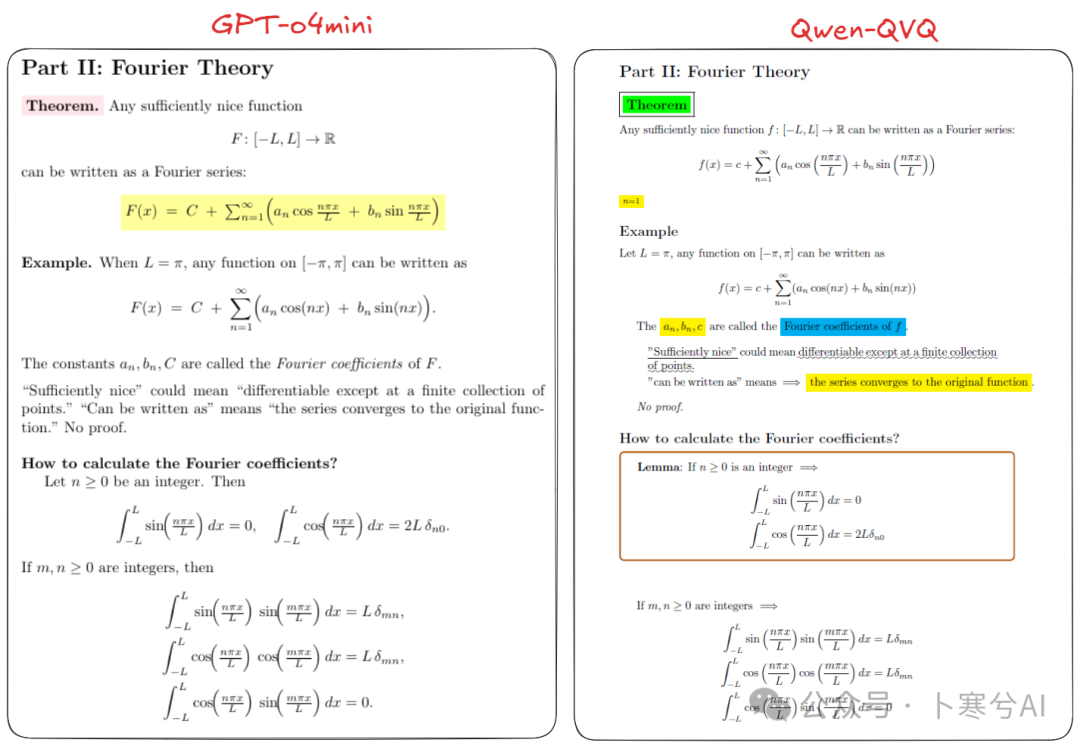 GPT-o4mini
Part II: Fourier Theory
Theorem. Any sufficiently nice function
F: [−L, L] → ℝ
can be written as a Fourier series:
F(x) = C + ∑_{n=1}^{∞} (a_n cos nπx/L + b_n sin nπx/L)
Example. When L = π, any function on [−π, π] can be written as
F(x) = C + ∑_{n=1}^{∞} (a_n cos(nx) + b_n sin(nx)).
The constants a_n, b_n, C are called the Fourier coefficients of F.
“Sufficiently nice” could mean “differentiable except at a finite collection of
points.” “Can be written as” means “the series converges to the original func-
tion.” No proof.
How to calculate the Fourier coefficients?
Let n ≥ 0 be an integer. Then
∫_{−L}^{L} sin(nπx/L) dx = 0, ∫_{−L}^{L} cos(nπx/L) dx = 2L δ_{n0}.
If m, n ≥ 0 are integers, then
∫_{−L}^{L} sin(nπx/L) sin(mπx/L) dx = L δ_{mn},
∫_{−L}^{L} cos(nπx/L) cos(mπx/L) dx = L δ_{mn},
∫_{−L}^{L} cos(nπx/L) sin(mπx/L) dx = 0.
Qwen-QVQ
Part II: Fourier Theory
Theorem
Any sufficiently nice function f : [−L, L] → ℝ can be written as a Fourier series:
f(x) = c + ∑_{n=1}^{∞} (a_n cos (nπx/L) + b_n sin (nπx/L))
n=1
Example
Let L = π, any function on [−π, π] can be written as
f(x) = c + ∑_{n=1}^{∞} (a_n cos(nx) + b_n sin(nx))
The a_n, b_n, c are called the Fourier coefficients of f.
”Sufficiently nice” could mean differentiable except at a finite collection
of points.
”can be written as” means ⟹ the series converges to the original function.
No proof.
How to calculate the Fourier coefficients?
Lemma: If n ≥ 0 is an integer ⟹
∫_{−L}^{L} sin (nπx/L) dx = 0
∫_{−L}^{L} cos (nπx/L) dx = 2Lδ_{n0}
If m, n ≥ 0 are integers ⟹
∫_{−L}^{L} sin (nπx/L) sin (mπx/L) dx = Lδ_{mn}
∫_{−L}^{L} cos (nπx/L) cos (mπx/L) dx = Lδ_{mn}
∫_{−L}^{L} cos (nπx/L) sin (mπx/L) dx = 0
公众号 · 卜寒兮AI